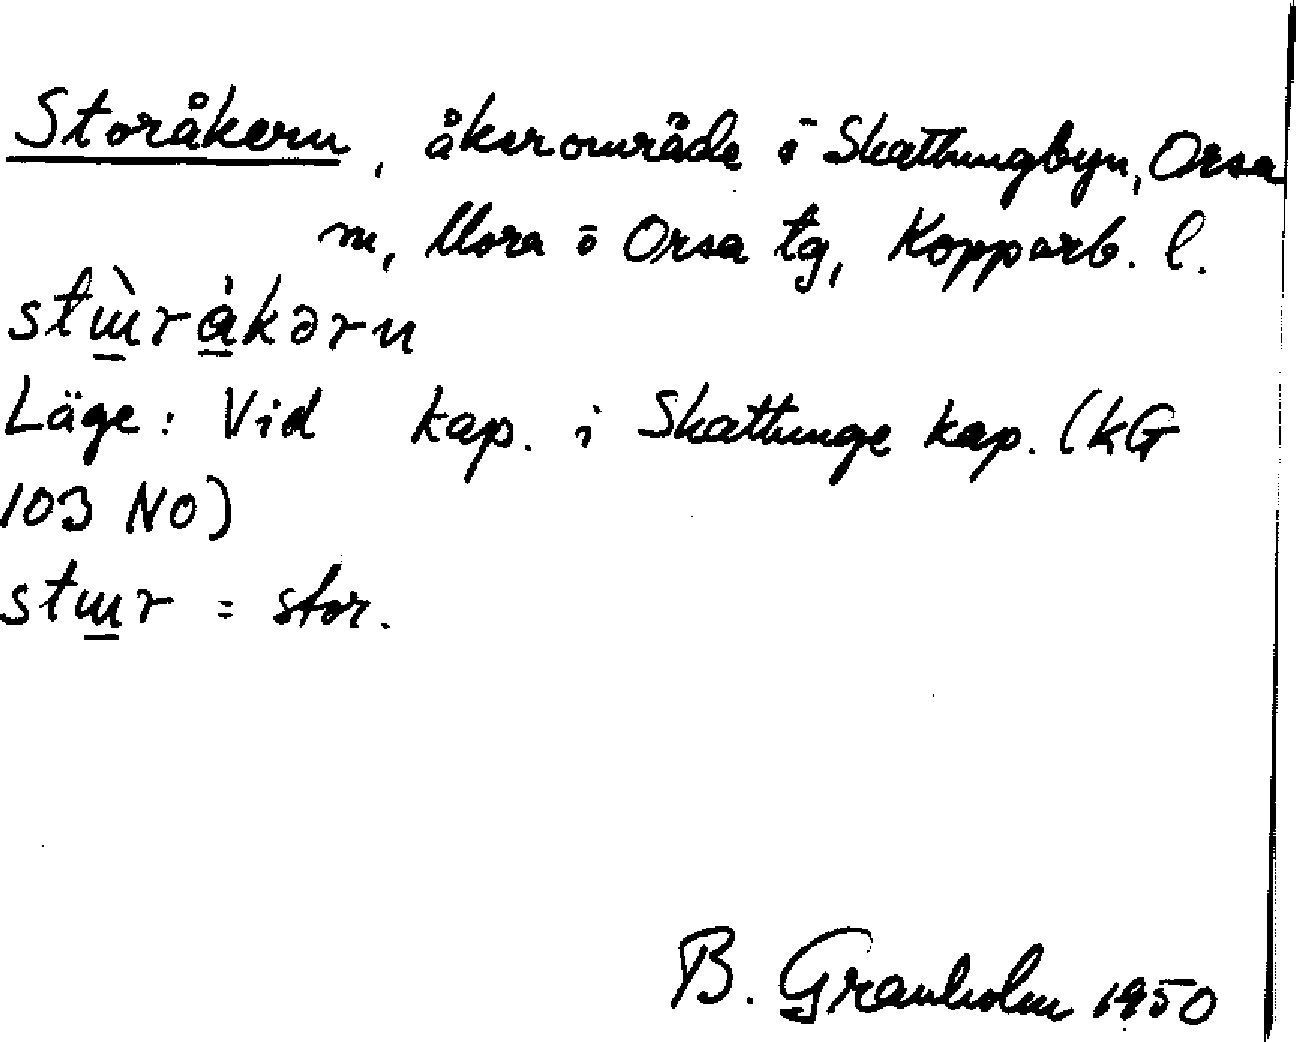 Storåkern, åkerområde i Skattungbyn, Orsa
sn, Mora o Orsa tg, Kopparb. l.
stɯ̀råkərn
Läge: Vid kap. i Skattunge kap. (KG
103 NO)
stɯr = stor.
B. Granholm 1950